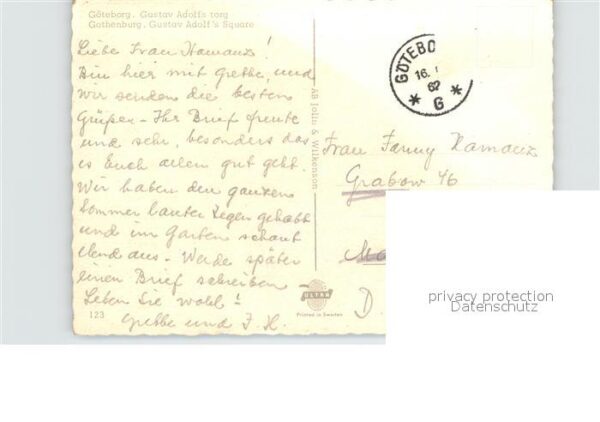 Göteborg. Gustav Adolfs torg
Gothenburg. Gustav Adolf's Square
Liebe Frau Hamanz!
Bin hier mit Grethe, und
wir senden die besten
Grüße – Ihr Brief freute
uns sehr, besonders das
es Euch allen gut geht.
Wir haben den ganzen
Sommer lauter Regen gehabt
und im Garten schaut
elend aus. Werde später
einen Brief schreiben
Leben Sie wohl!
Grethe und J. H.
123
AB Jollin & Wilkenson
ULTRA
Printed in Sweden
GÖTEBO
16.
62
* G *
Frau Fanny Hamanz
Grabow 46
D
privacy protection
Datenschutz